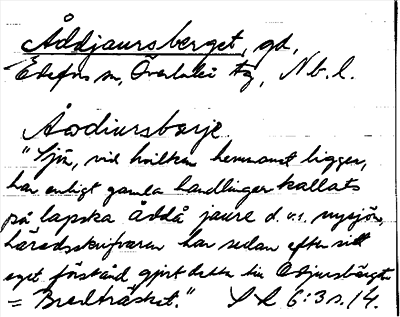 Åddjaursberget, gd,
Edefors sn, Överluleå tg, Nb. l.
Åodiursbærje
"Sjön, vid hvilken hemmanet ligger,
har enligt gamla handlingar kallats
på lapska åddå jaure d. v. s. nysjön,
häradsskrifvaren har sedan efter sitt
eget förstånd gjort detta till
= Bredträsket." 6:3 s. 14.